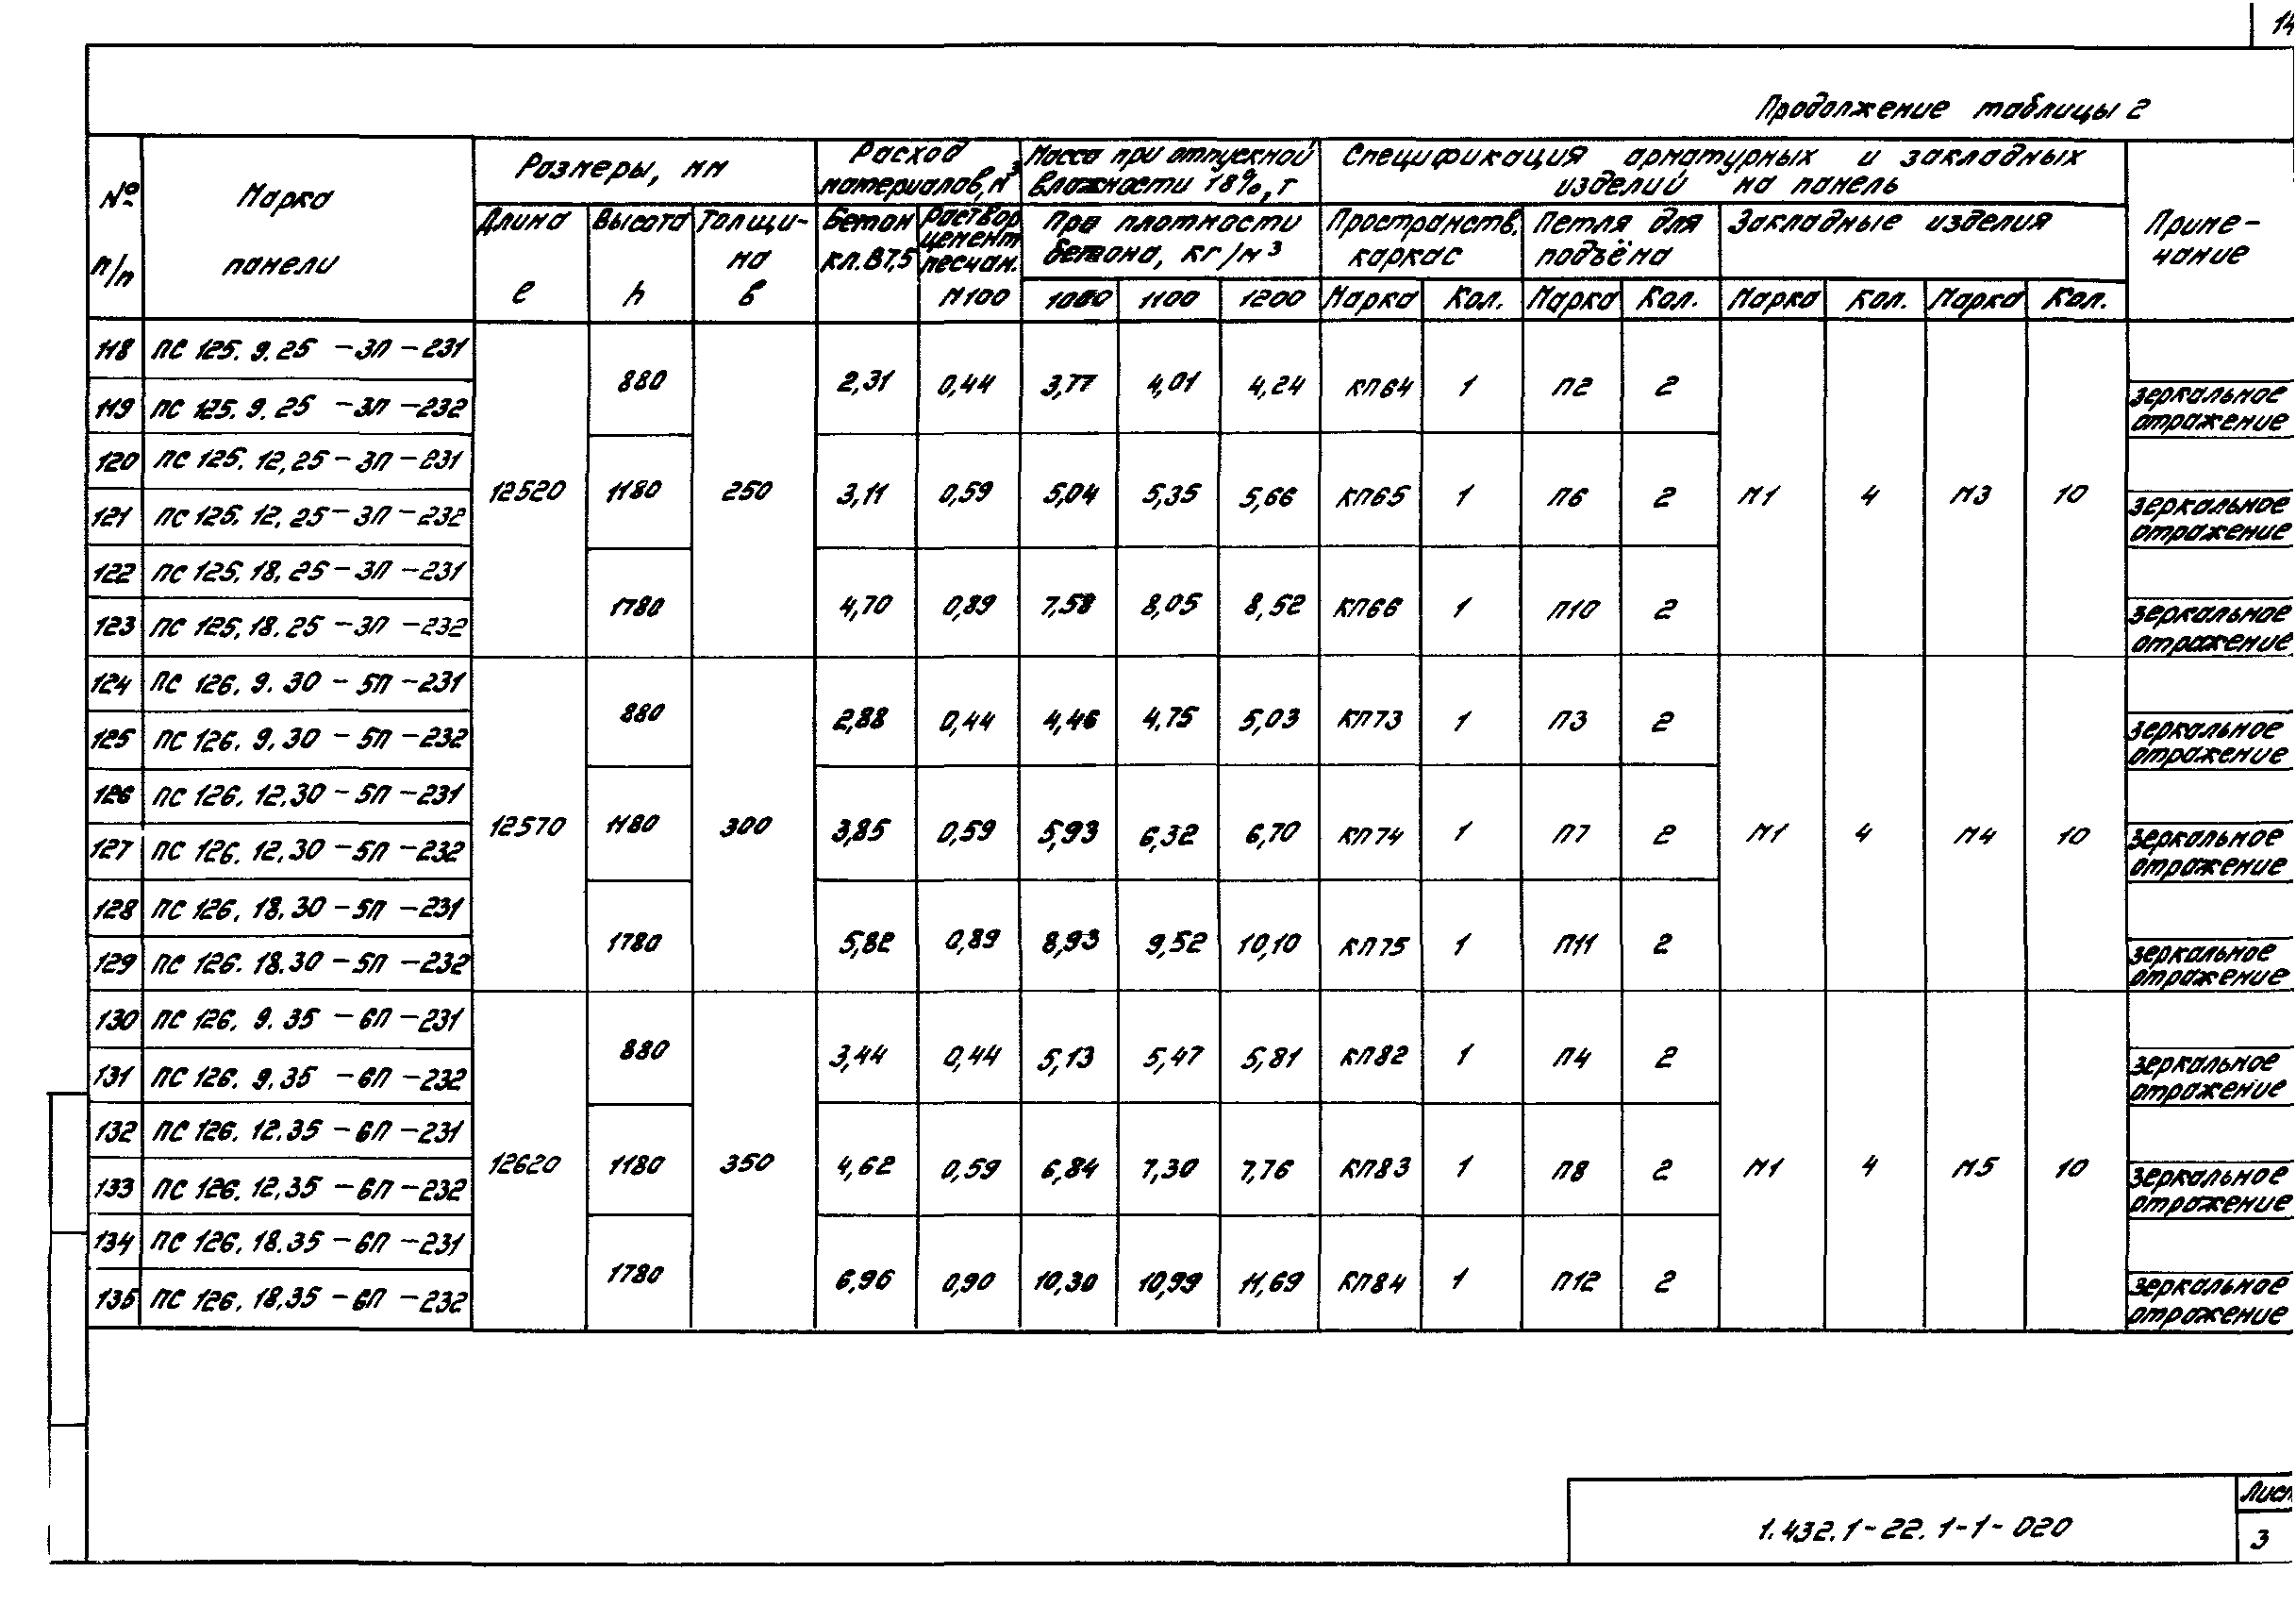 14
Продолжение таблицы 2
№ п/п
Марка панели
Размеры, мм
Длина l
Высота h
Толщи-
на b
Расход
материалов, м³
Бетон
кл. В7,5
Раствор
цемент
песчан.
М100
Масса при отпускной
влажности 18%, т
При плотности
бетона, кг/м³
1000 1100 1200
Спецификация арматурных и закладных
изделий на панель
Пространств.
каркас
Петля для
подъёма
Закладные изделия
Марка Кол. Марка Кол. Марка Кол. Марка Кол.
Приме-
чание
118 ПС 125. 9. 25 -3П -231
880 2,31 0,44 3,77 4,01 4,24 КП64 1 П2 2
119 ПС 125. 9. 25 -3П -232 зеркальное
отражение
120 ПС 125. 12, 25 -3П -231
12520 1180 250 3,11 0,59 5,04 5,35 5,66 КП65 1 П6 2 М1 4 М3 10
121 ПС 125. 12, 25 -3П -232 зеркальное
отражение
122 ПС 125, 18, 25 -3П -231
1780 4,70 0,89 7,58 8,05 8,52 КП66 1 П10 2
123 ПС 125, 18. 25 -3П -232 зеркальное
отражение
124 ПС 126. 9. 30 - 5П -231
880 2,88 0,44 4,46 4,75 5,03 КП73 1 П3 2
125 ПС 126. 9, 30 - 5П -232 зеркальное
отражение
126 ПС 126. 12,30 - 5П -231
12570 1180 300 3,85 0,59 5,93 6,32 6,70 КП74 1 П7 2 М1 4 М4 10
127 ПС 126. 12,30 -5П -232 зеркальное
отражение
128 ПС 126, 18, 30 -5П -231
1780 5,82 0,89 8,93 9,52 10,10 КП75 1 П11 2
129 ПС 126. 18.30 -5П -232 зеркальное
отражение
130 ПС 126. 9. 35 - 6П -231
880 3,44 0,44 5,13 5,47 5,81 КП82 1 П4 2
131 ПС 126. 9. 35 -6П -232 зеркальное
отражение
132 ПС 126. 12.35 -6П -231
12620 1180 350 4,62 0,59 6,84 7,30 7,76 КП83 1 П8 2 М1 4 М5 10
133 ПС 126. 12,35 -6П -232 зеркальное
отражение
134 ПС 126, 18.35 -6П -231
1780 6,96 0,90 10,30 10,99 11,69 КП84 1 П12 2
135 ПС 126, 18,35 -6П -232 зеркальное
отражение
1.432.1-22.1-1-020
Лист
3